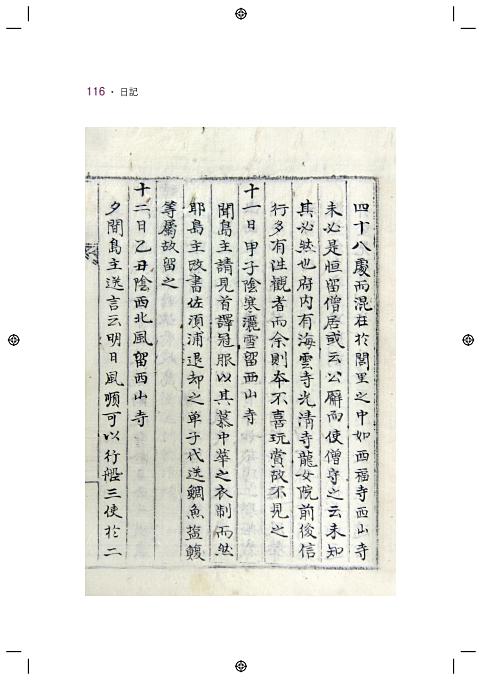 116 · 日記
四十八處而混在於閭里之中如西福寺西山寺
未必是恒留僧居或云公廨而使僧守之云未知
其必然也府内有海雲寺光清寺龍女院前後信
行多有往観者而余則本不喜玩賞故不見之
十一日甲子陰寒灑雪留西山寺
聞島主請見首譯冠服以其慕中華之衣制而然
耶島主改書佐須浦退却之单子代送鯛魚塩鰒
等屬故留之
十二日乙丑陰西北風留西山寺
夕間島主送言云明日風順可以行船三使於二